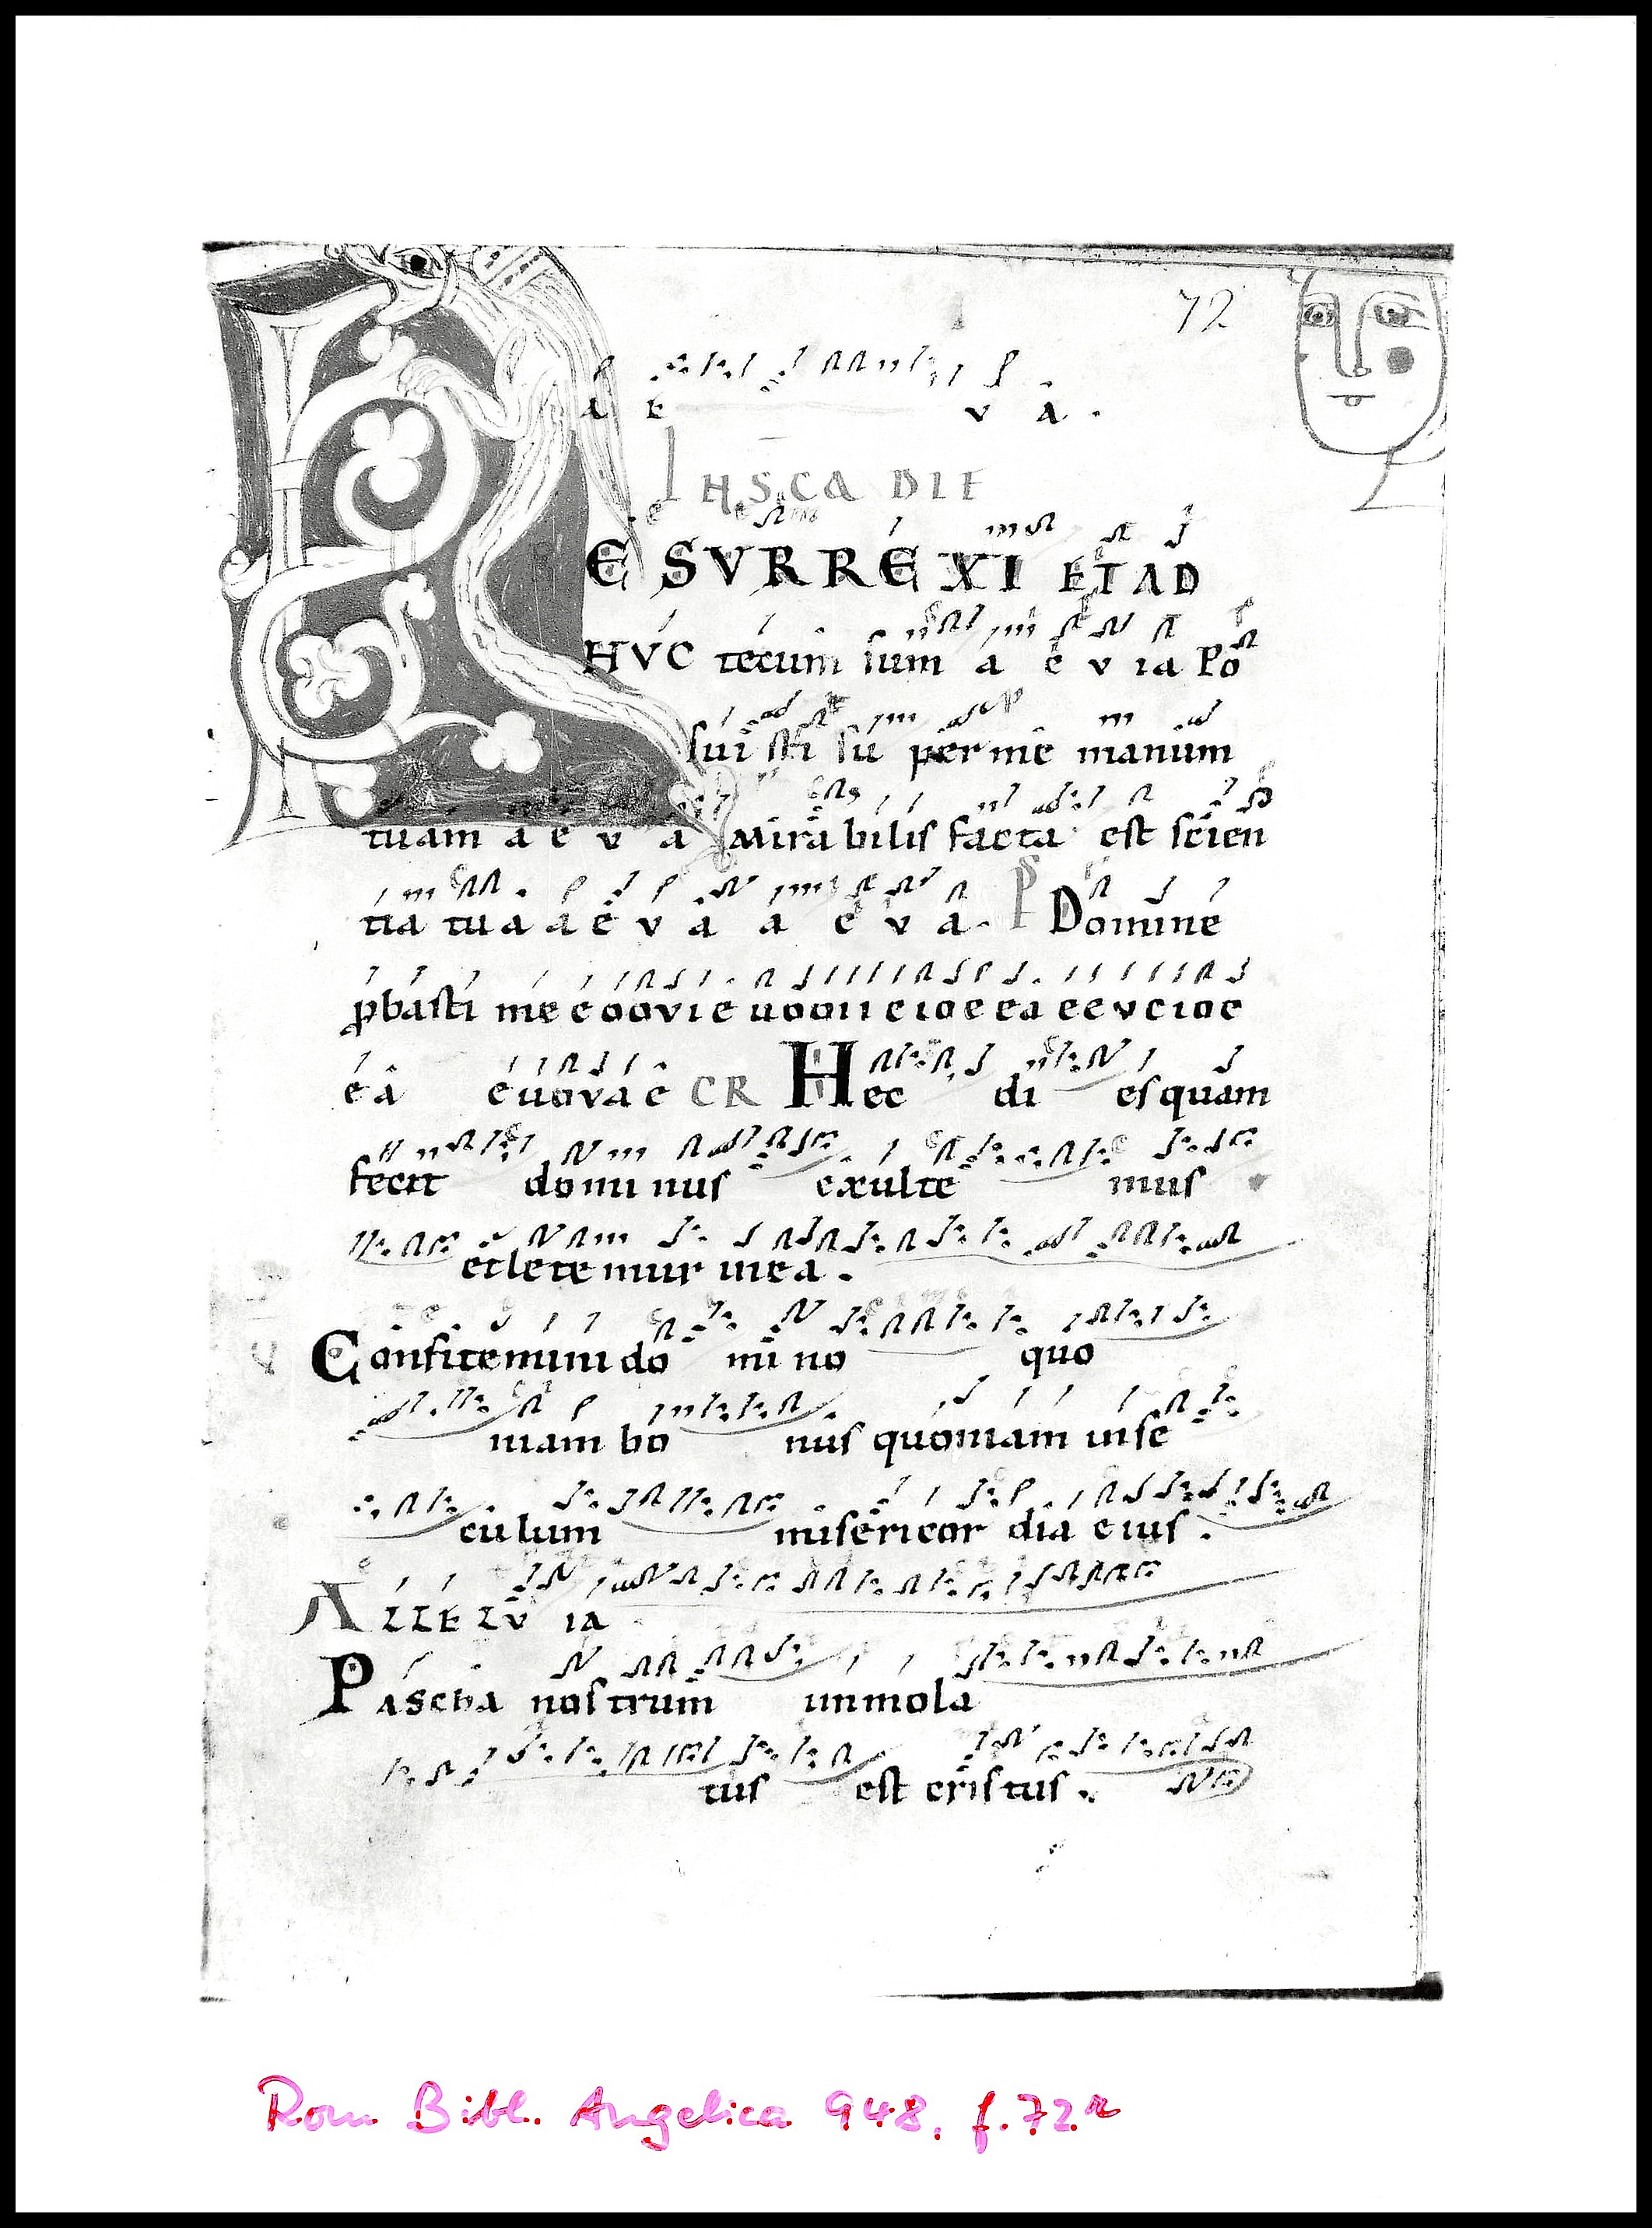 72
A E V A .
IN SCA DIE
E SVRREXI ET AD
HVC tecum sum a e v ia Po
sui sti su per me manum
tuam a e v a Mirabilis facta est scien
tia tua a e v a a e v a . P Domine
pbasti me e o o v i e u o o i i e i o e e a e e v e i o e
e a e u o v a e C R Hec di es quam
fecit domi nus exulte mus
et lete mur in ea .
Confitemini do mi no quo
niam bo nus quoniam in se
cu lum miserieor dia eius .
ALLELV IA
Pascha nos trum immola
tus est cris tus .
Rom Bibl. Angelica 948, f. 72r